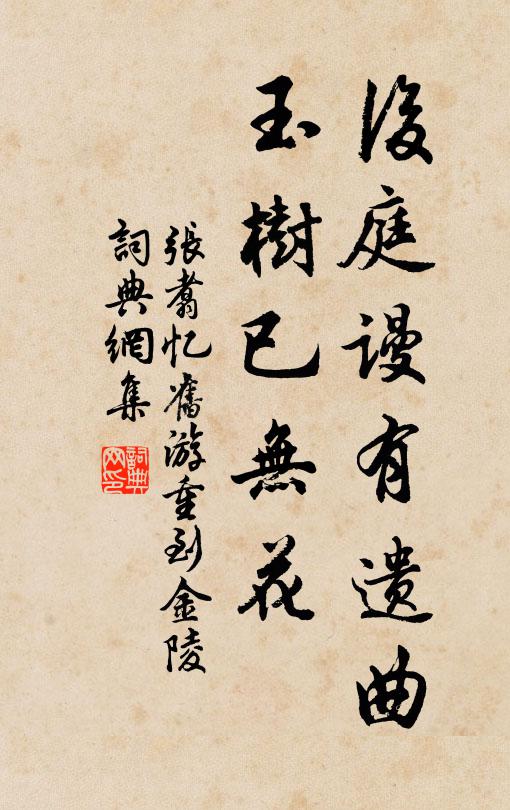 後庭謾有遺曲
玉樹已無花
張翥忆舊游重到金陵
詞典網集
詞典
网印